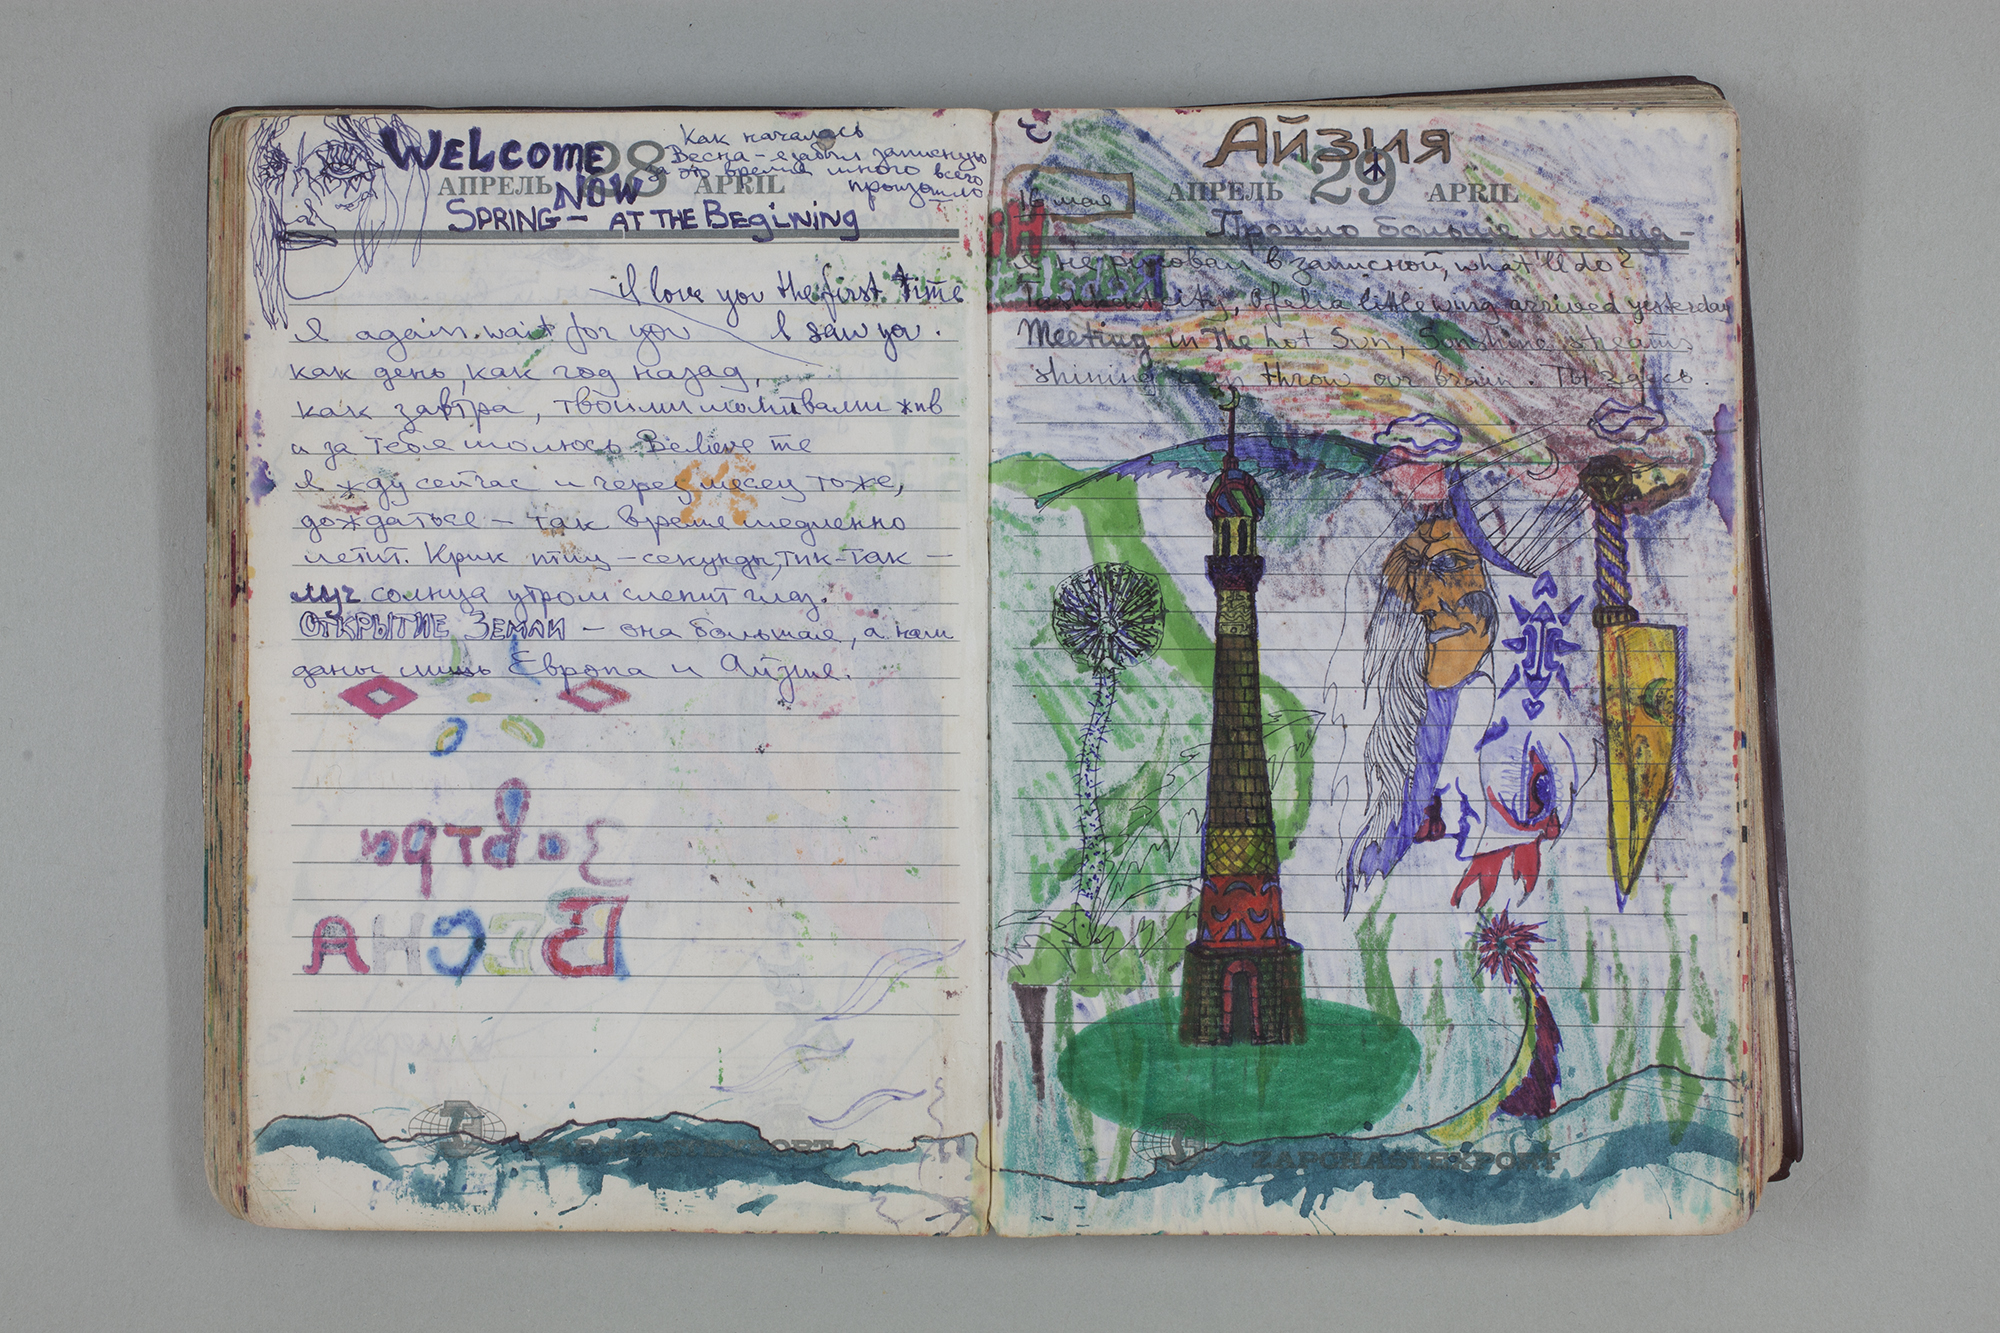 WELCOME
28
NOW
АПРЕЛЬ APRIL
SPRING – AT THE BEGINING
Как началась
Весна – я забыл записную
за это время много всего
произошло
I love you the first time
I again wait for you I saw you.
как день, как год назад,
как завтра, твоими молитвами жив
и за тебя молюсь Believe me
Я жду сейчас и через месец тоже,
дождаться – так время медленно
летит. Крик птиц – секунды, тик-так –
луч солнца утром слепит глаз.
ОТКРЫТИЕ ЗЕМЛИ – она большая, а нам
даны лишь Европа и
завтра
ВЕСНА
ZAPCHASTEXPORT
АЙЗИЯ
16 мая
АПРЕЛЬ 29 APRIL
Прошло больше месяца –
я не рисовал в записной, what'll do?
city, Ofelia little wing arrived yesterday
Meeting in the hot Sun, Sunshine streams
shining throw our brain. Ты здесь.
ZAPCHASTEXPORT